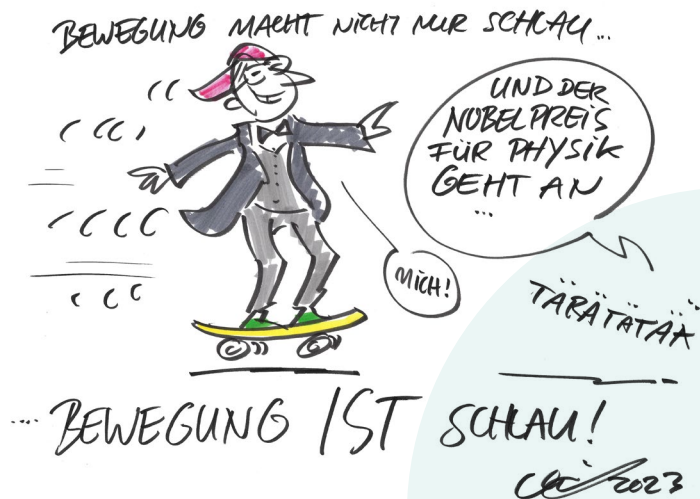 BEWEGUNG MACHT NICHT NUR SCHLAU...
UND DER
NOBELPREIS
FÜR PHYSIK
GEHT AN
...
MICH!
TÄRÄTÄTÄÄ
... BEWEGUNG IST SCHLAU!
2023